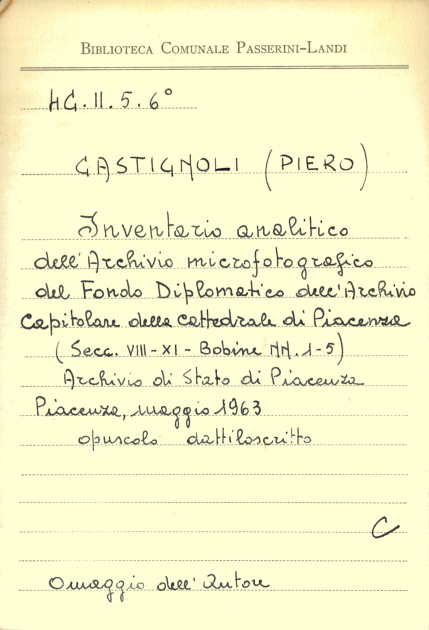 BIBLIOTECA COMUNALE PASSERINI-LANDI
4G.II.5.6°
CASTIGNOLI (PIERO)
Inventario analitico
dell'Archivio microfotografico
del Fondo Diplomatico dell'Archivio
Capitolare della cattedrale di Piacenza
(Secc. VIII-XI - Bobine NN. 1-5)
Archivio di Stato di Piacenza
Piacenza, maggio 1963
opuscolo dattiloscritto
C
Omaggio dell'Autore